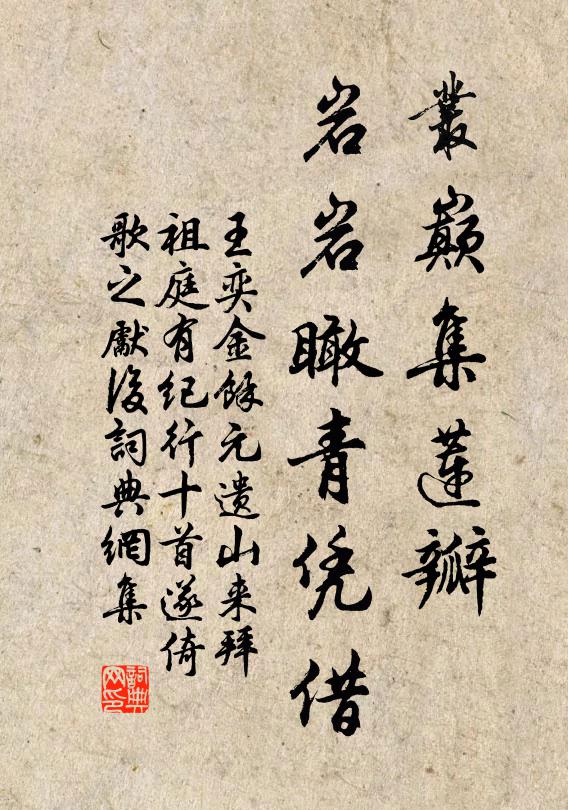 叢巔集蓮瓣
岩岩瞰青凭借
王奕金餘元遺山来拜
祖庭有紀行十首遂倚
歌之獻後詞典網集
詞典网印